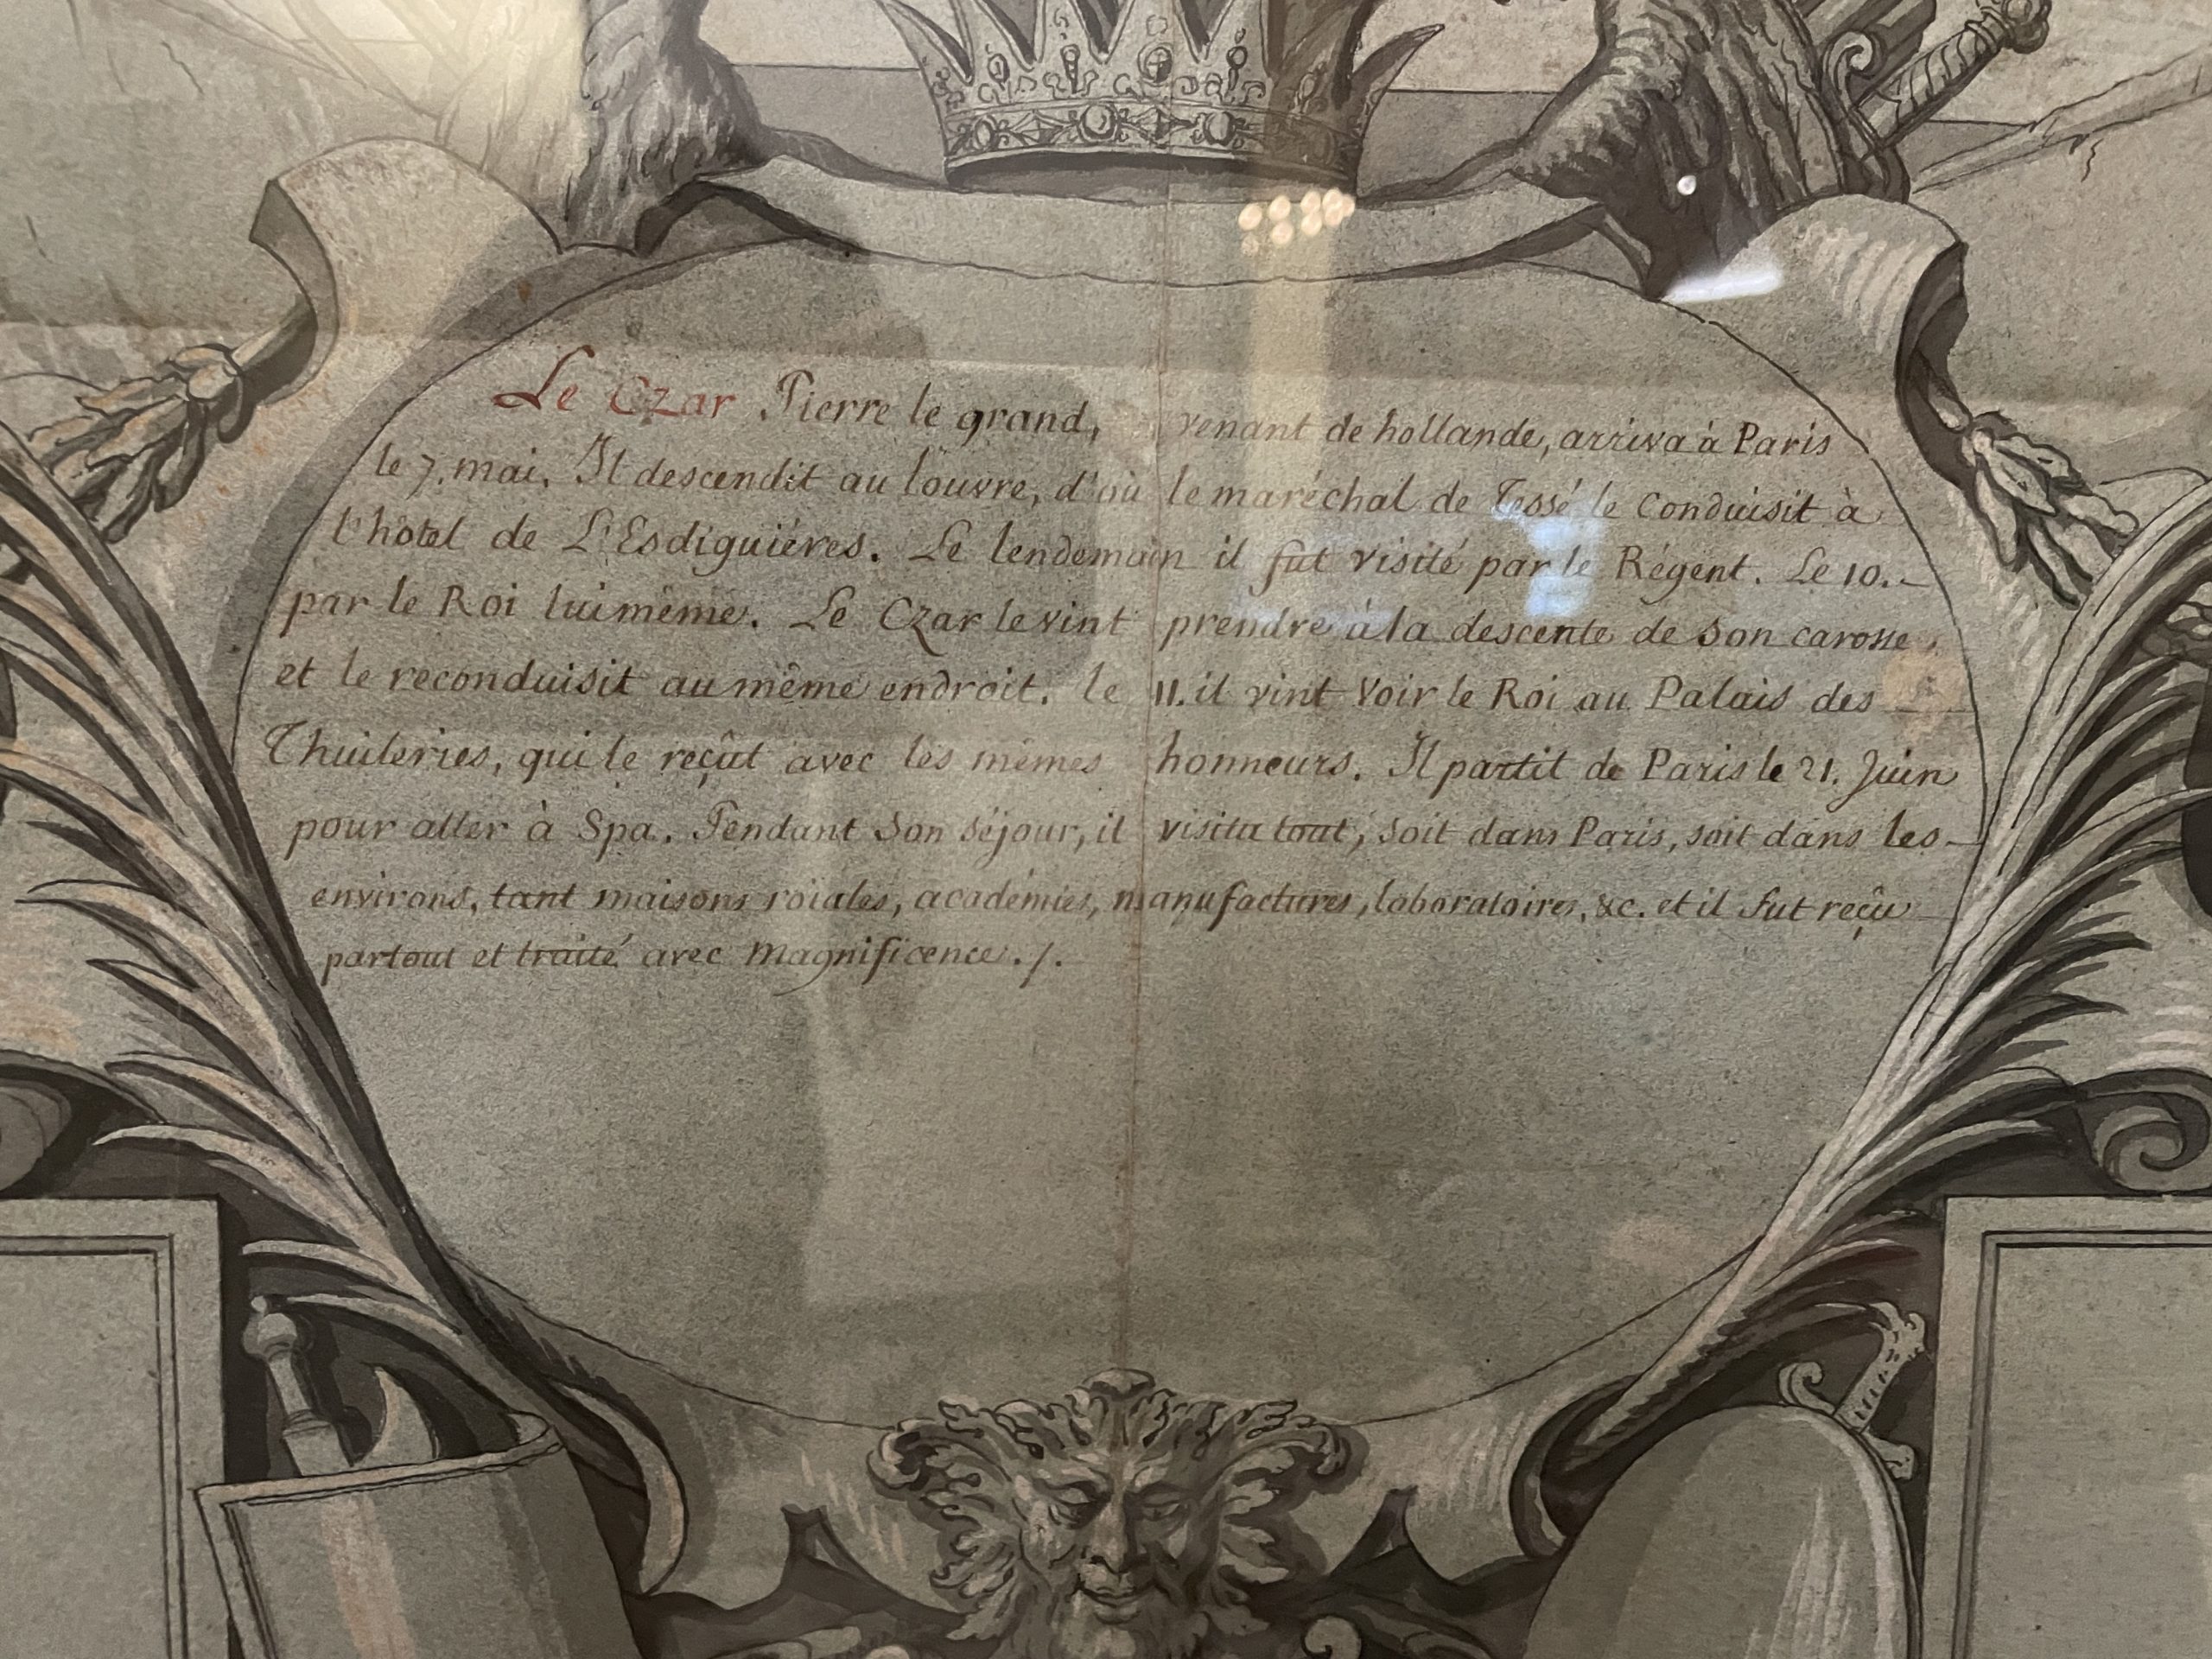 Le Czar Pierre le grand, venant de hollande, arriva à Paris
le 7. mai. Il descendit au louvre, d'où le maréchal de Tessé le Conduisit à
l'hôtel de L'Esdiguiéres. Le lendemain il fut visité par le Régent. Le 10.
par le Roi lui même. Le Czar le vint prendre à la descente de son carosse,
et le reconduisit au même endroit. le 11. il vint voir le Roi au Palais des
Thuileries, qui le reçût avec les mêmes honneurs. Il partit de Paris le 21. Juin
pour aller à Spa. Pendant son séjour, il visita tout, soit dans Paris, soit dans les
environs, tant maisons roiales, académies, manufactures, laboratoires, &c. et il fut reçu
partout et traité avec magnificence./.